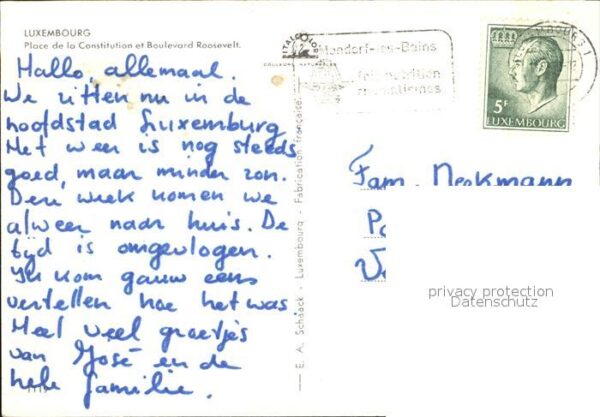 LUXEMBOURG
Place de la Constitution et Boulevard Roosevelt.
Hallo, allemaal.
We zitten nu in de
hoofdstad Luxemburg
Het weer is nog steeds
goed, maar minder zon.
Deze week komen we
alweer naar huis. De
tijd is omgevlogen.
Ik kom gauw eens
vertellen hoe het was.
Heel veel groetjes
van José en de
hele familie.
E. A. Schaack - Luxembourg - Fabrication française
ITALCOLOR
Mondorf-les-Bains
5F
LUXEMBOURG
Fam. Neckmann
privacy protection
Datenschutz